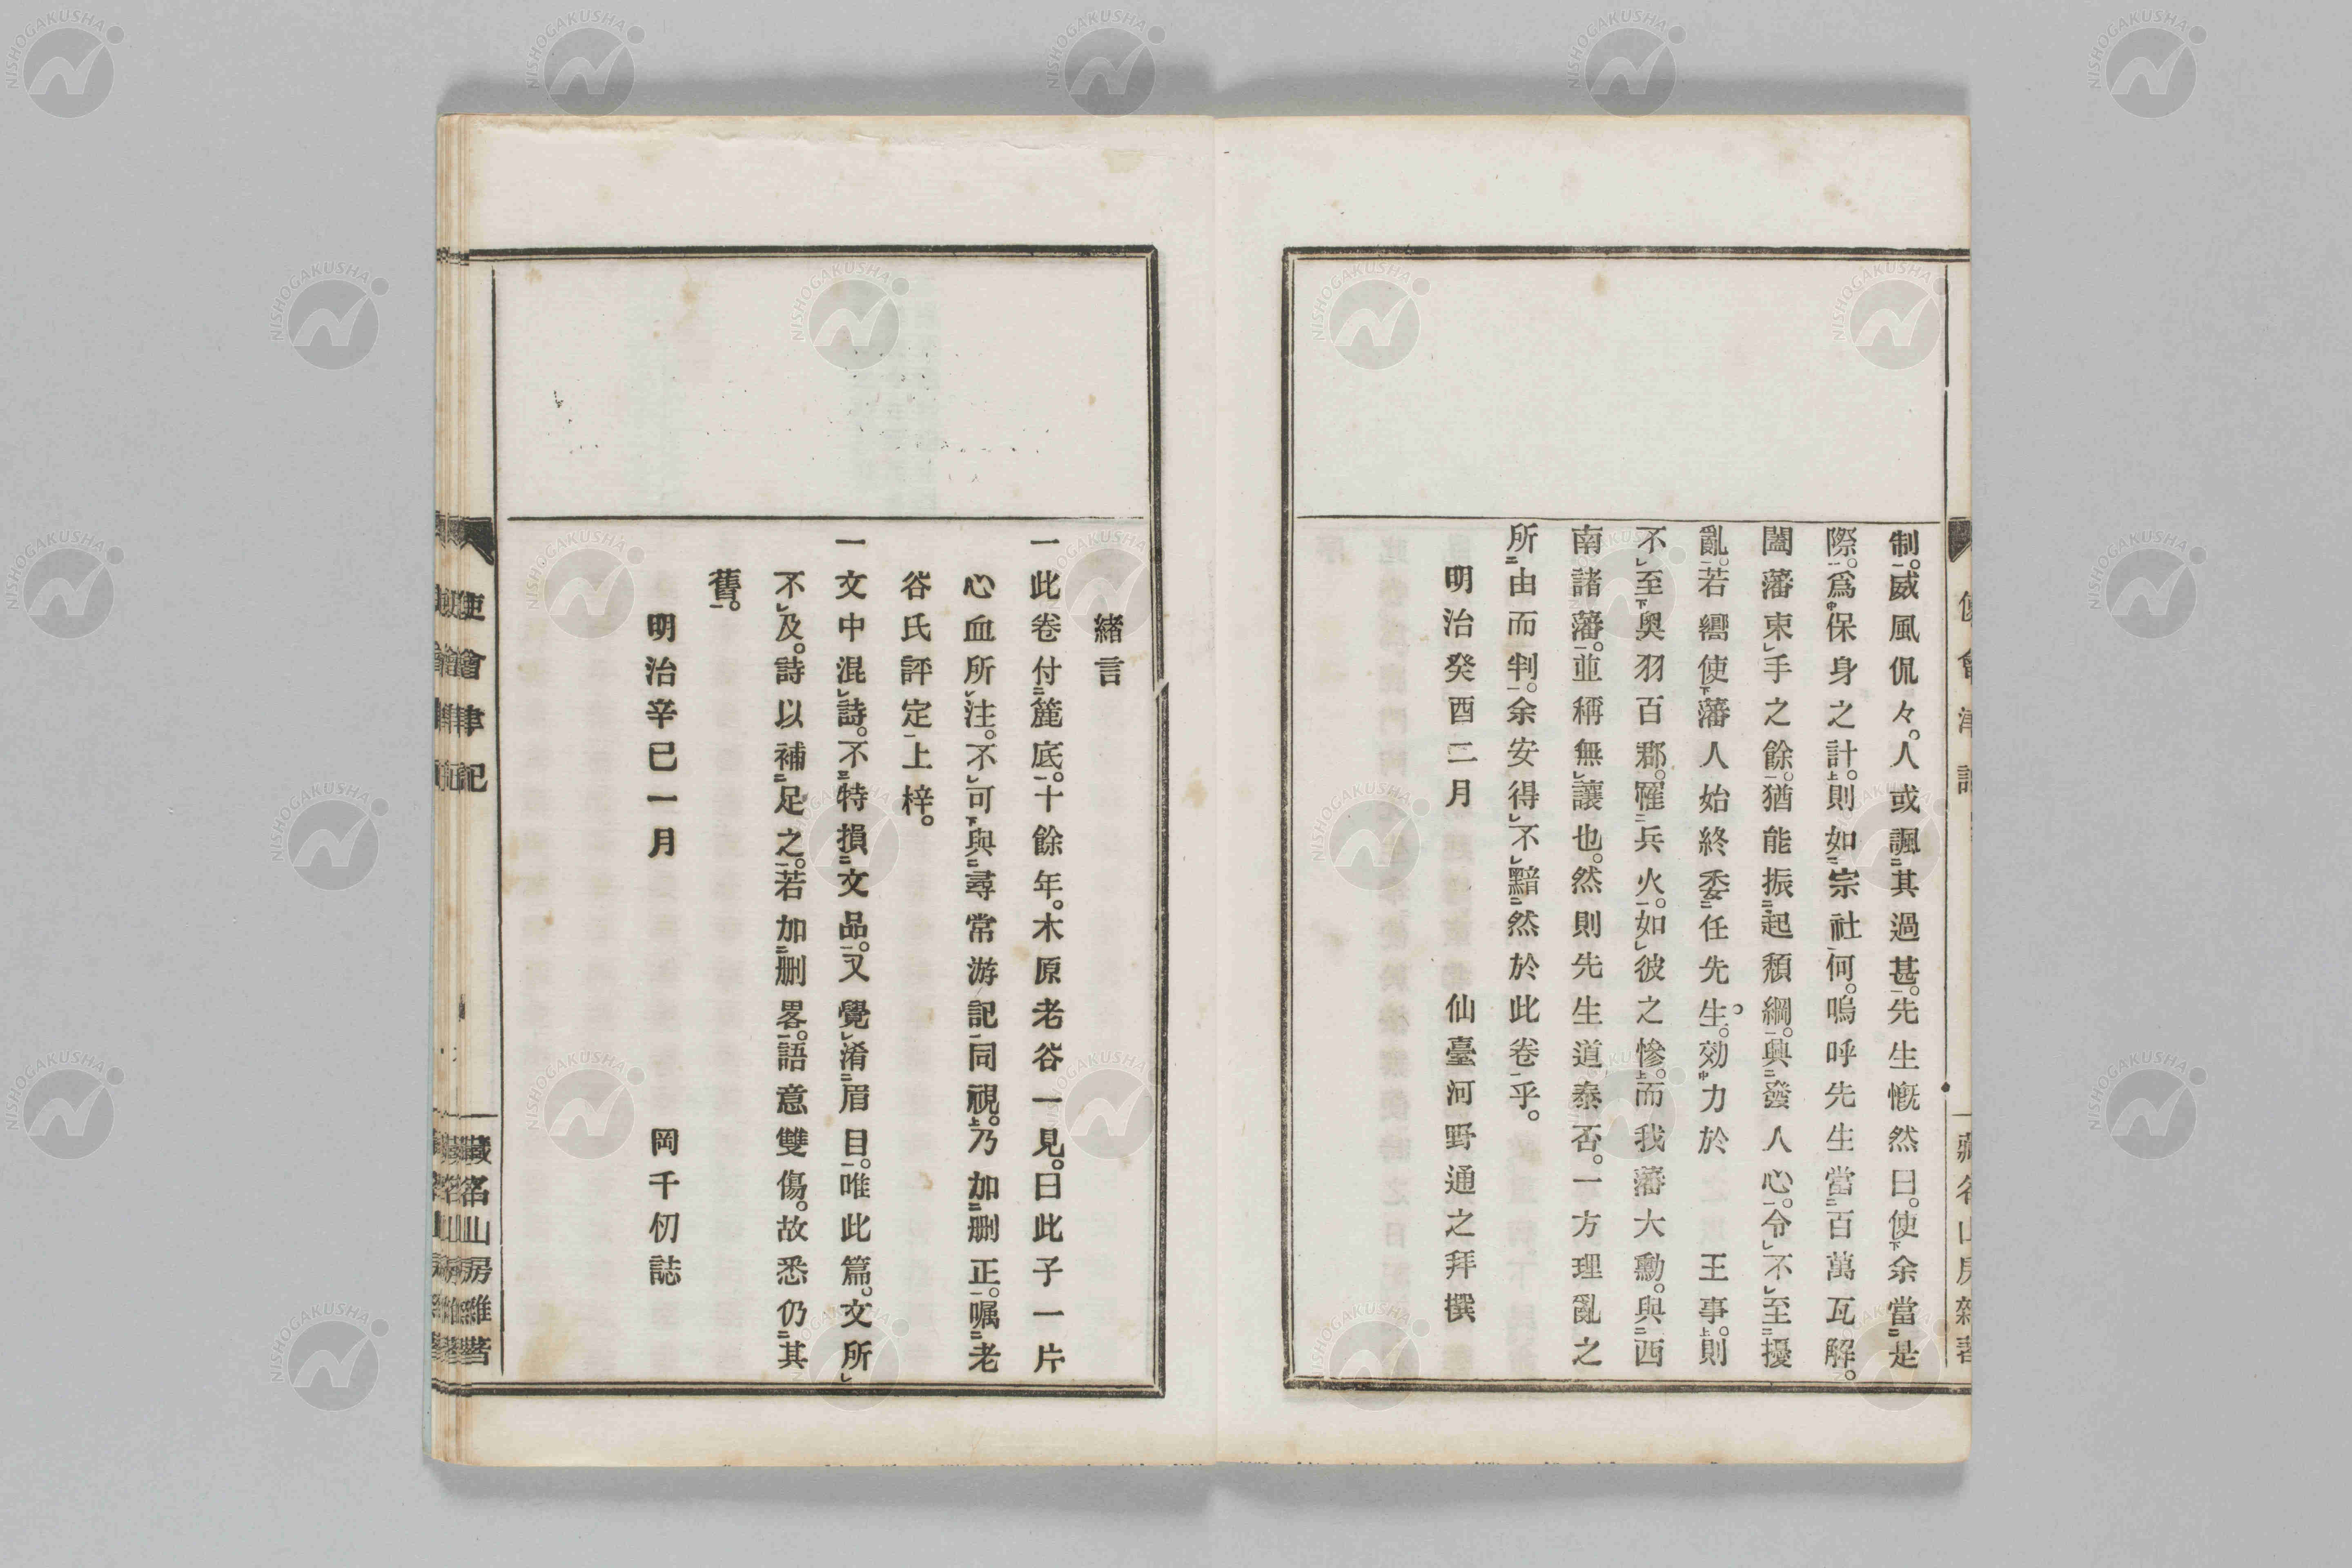 制。威風侃々。人或諷其過甚。先生慨然曰。使余當是
際。爲保身之計。則如宗社何。嗚呼先生當百萬瓦解。
闔藩束手之餘。猶能振起頽綱。興發人心。令不至擾
亂。若嚮使藩人始終委任先生。効力於 王事。則
不至奥羽百郡。罹兵火。如彼之慘。而我藩大勳。與西
南諸藩。並稱無讓也。然則先生道泰否。一方理亂之
所由而判。余安得不黯然於此卷乎。
明治癸酉二月 仙臺河野通之拜撰
緒言
一此卷付簏底。十餘年。木原老谷一見。曰此子一片
心血所注。不可與尋常游記同視。乃加刪正。嘱老
谷氏評定上梓。
一文中混詩。不特損文品。又覺淆眉目。唯此篇。文所
不及。詩以補足之。若加刪畧。語意雙傷。故悉仍其
舊。
明治辛巳一月 岡千仞誌
使會津記
藏名山房雜著
NISHOGAKUSHA